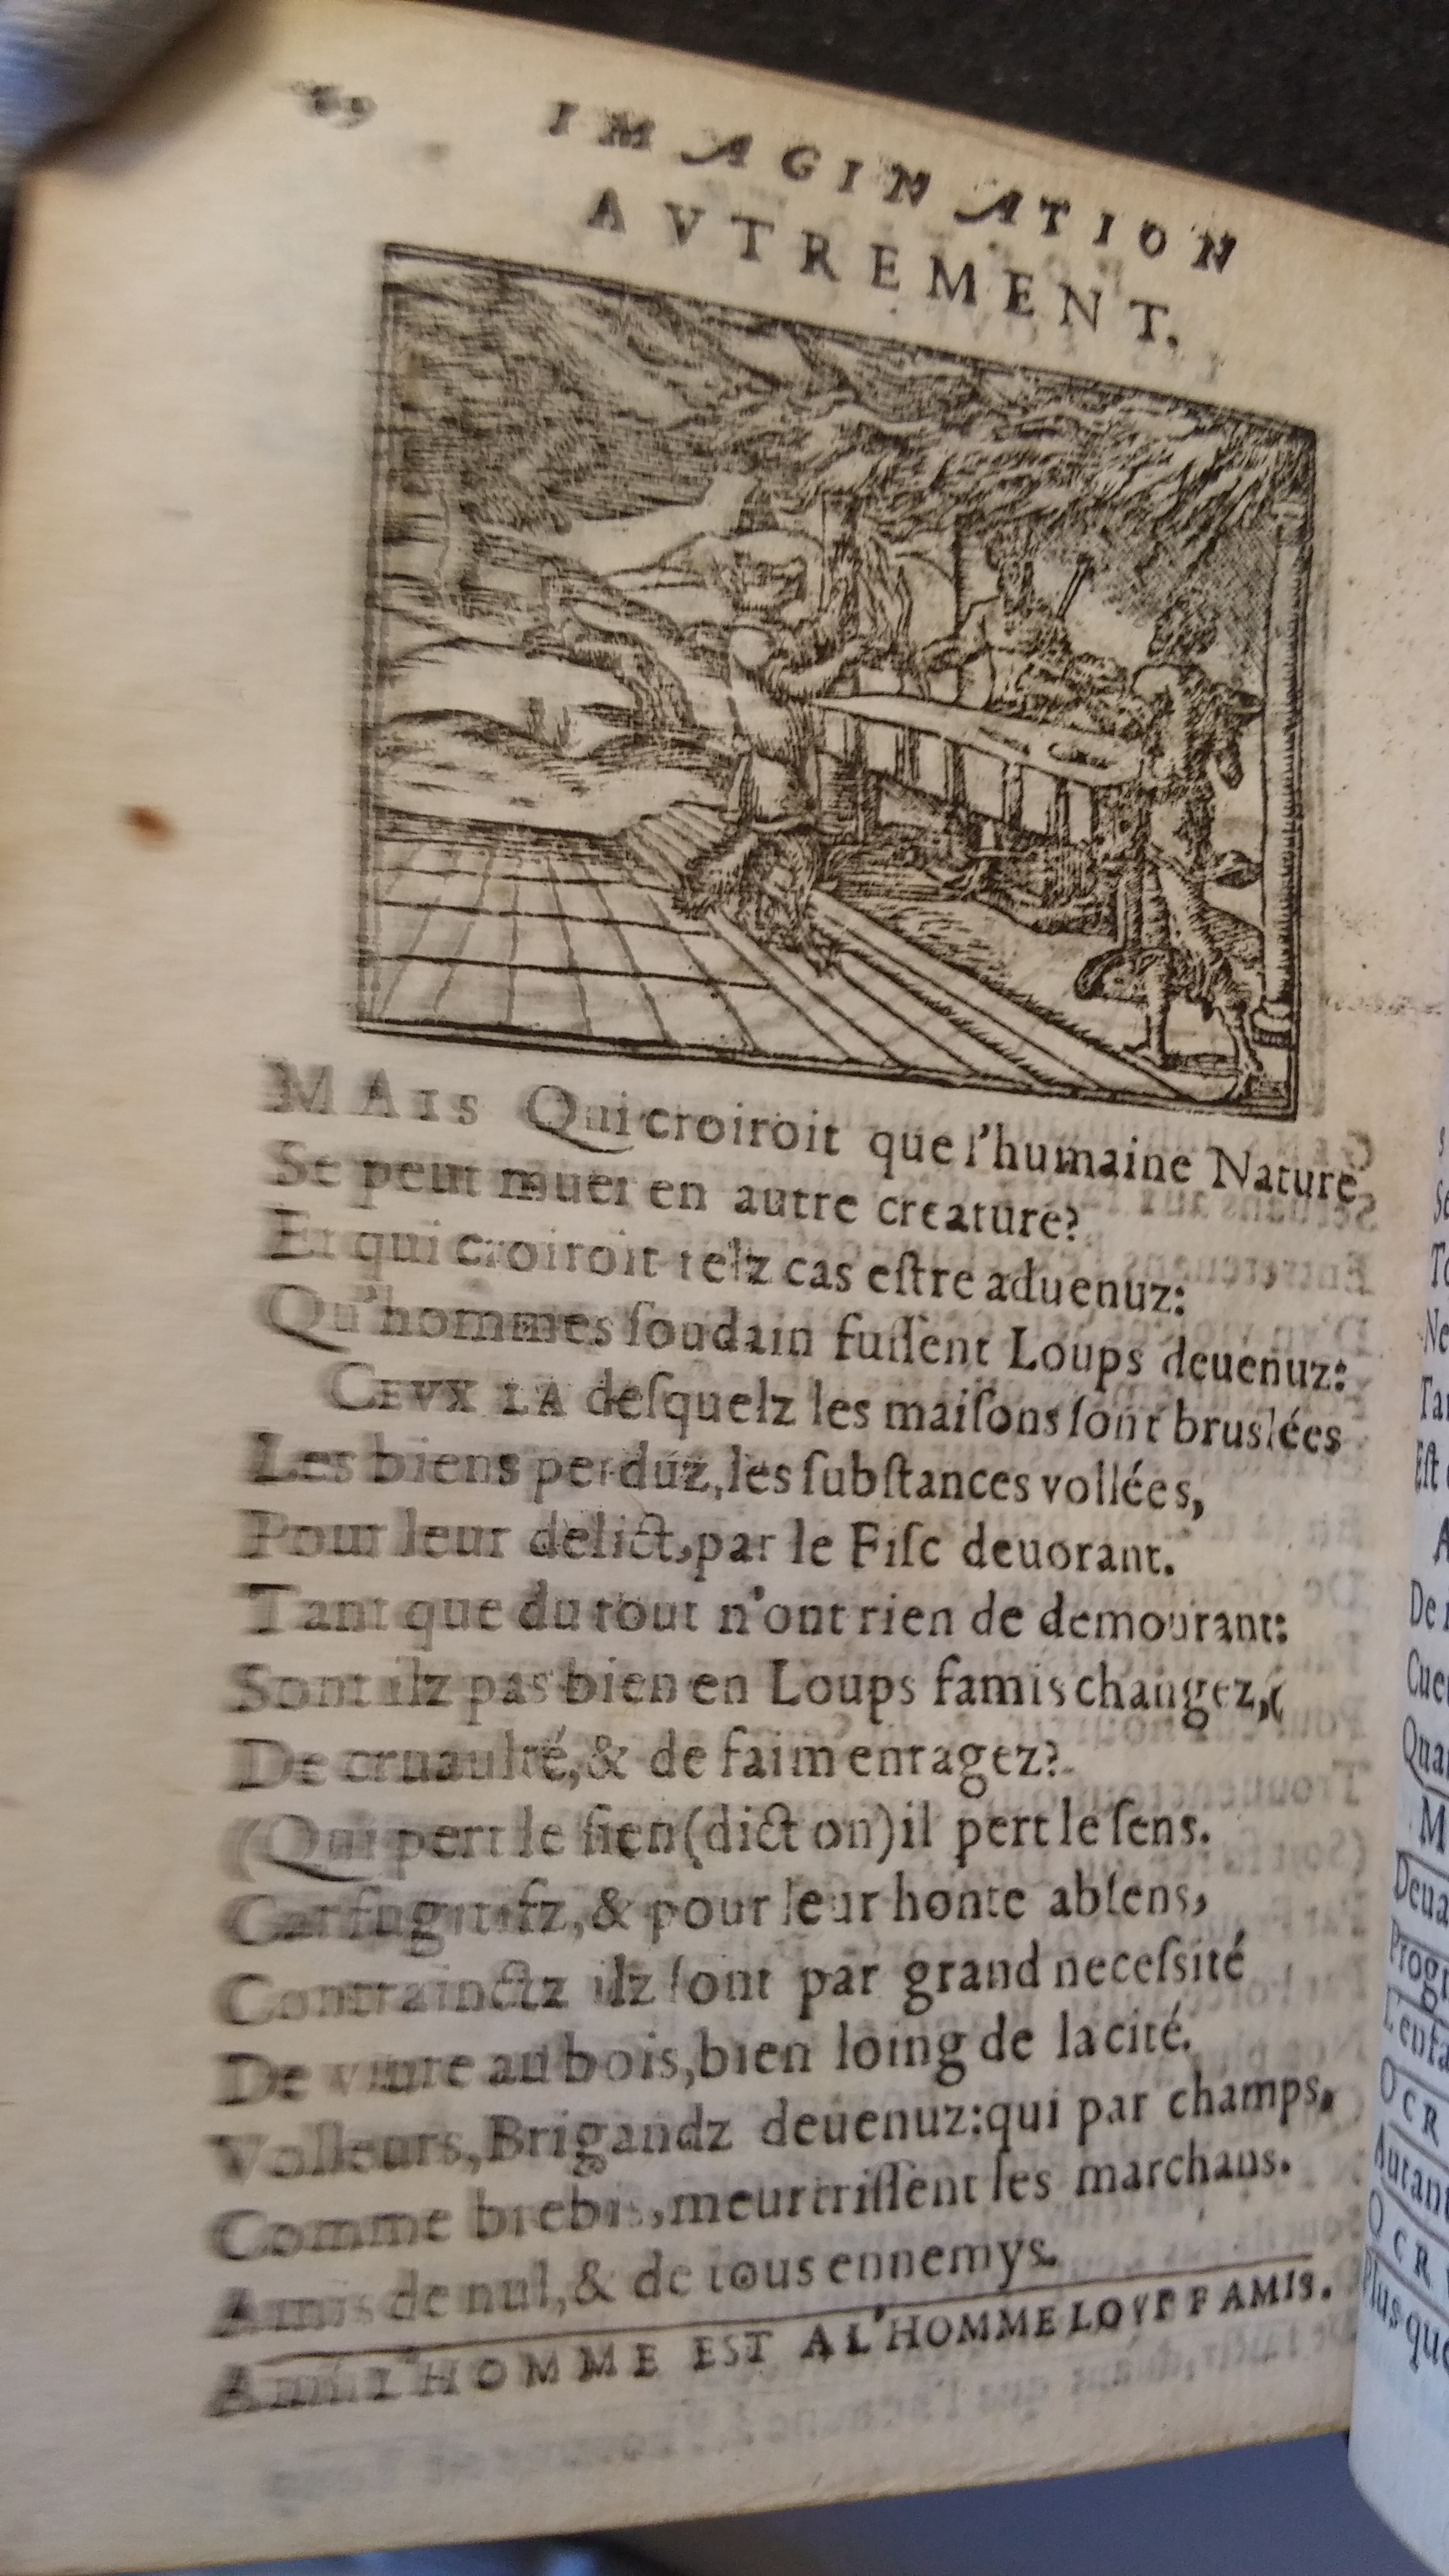 IMAGINATION
AVTREMENT.
MAIS Qui croiroit que l'humaine Nature
Se peut muer en autre creature?
Et qui croiroit telz cas eſtre aduenuz:
Qu'hommes ſoudain fuſſent Loups deuenuz:
CEVX LA deſquelz les maiſons ſont bruslées
Les biens perduz, les ſubſtances vollées,
Pour leur delict, par le Fiſc deuorant.
Tant que du tout n'ont rien de demourant:
Sont ilz pas bien en Loups famis changez,
De cruaulté, & de faim enragez?
(Qui pert le ſien (dict on) il pert le ſens.
Car fugitifz, & pour leur honte abſens,
Contrainctz ilz ſont par grand neceſsité
De viure au bois, bien loing de la cité.
Volleurs, Brigandz deuenuz: qui par champs,
Comme brebis, meurtriſſent les marchans.
Amis de nul, & de tous ennemys.
L'HOMME EST A L'HOMME LOVP FAMIS.
De
Cue
Qua
M
Deua
Progr
L'enfa
O CR
Autant
O CR
Plus que